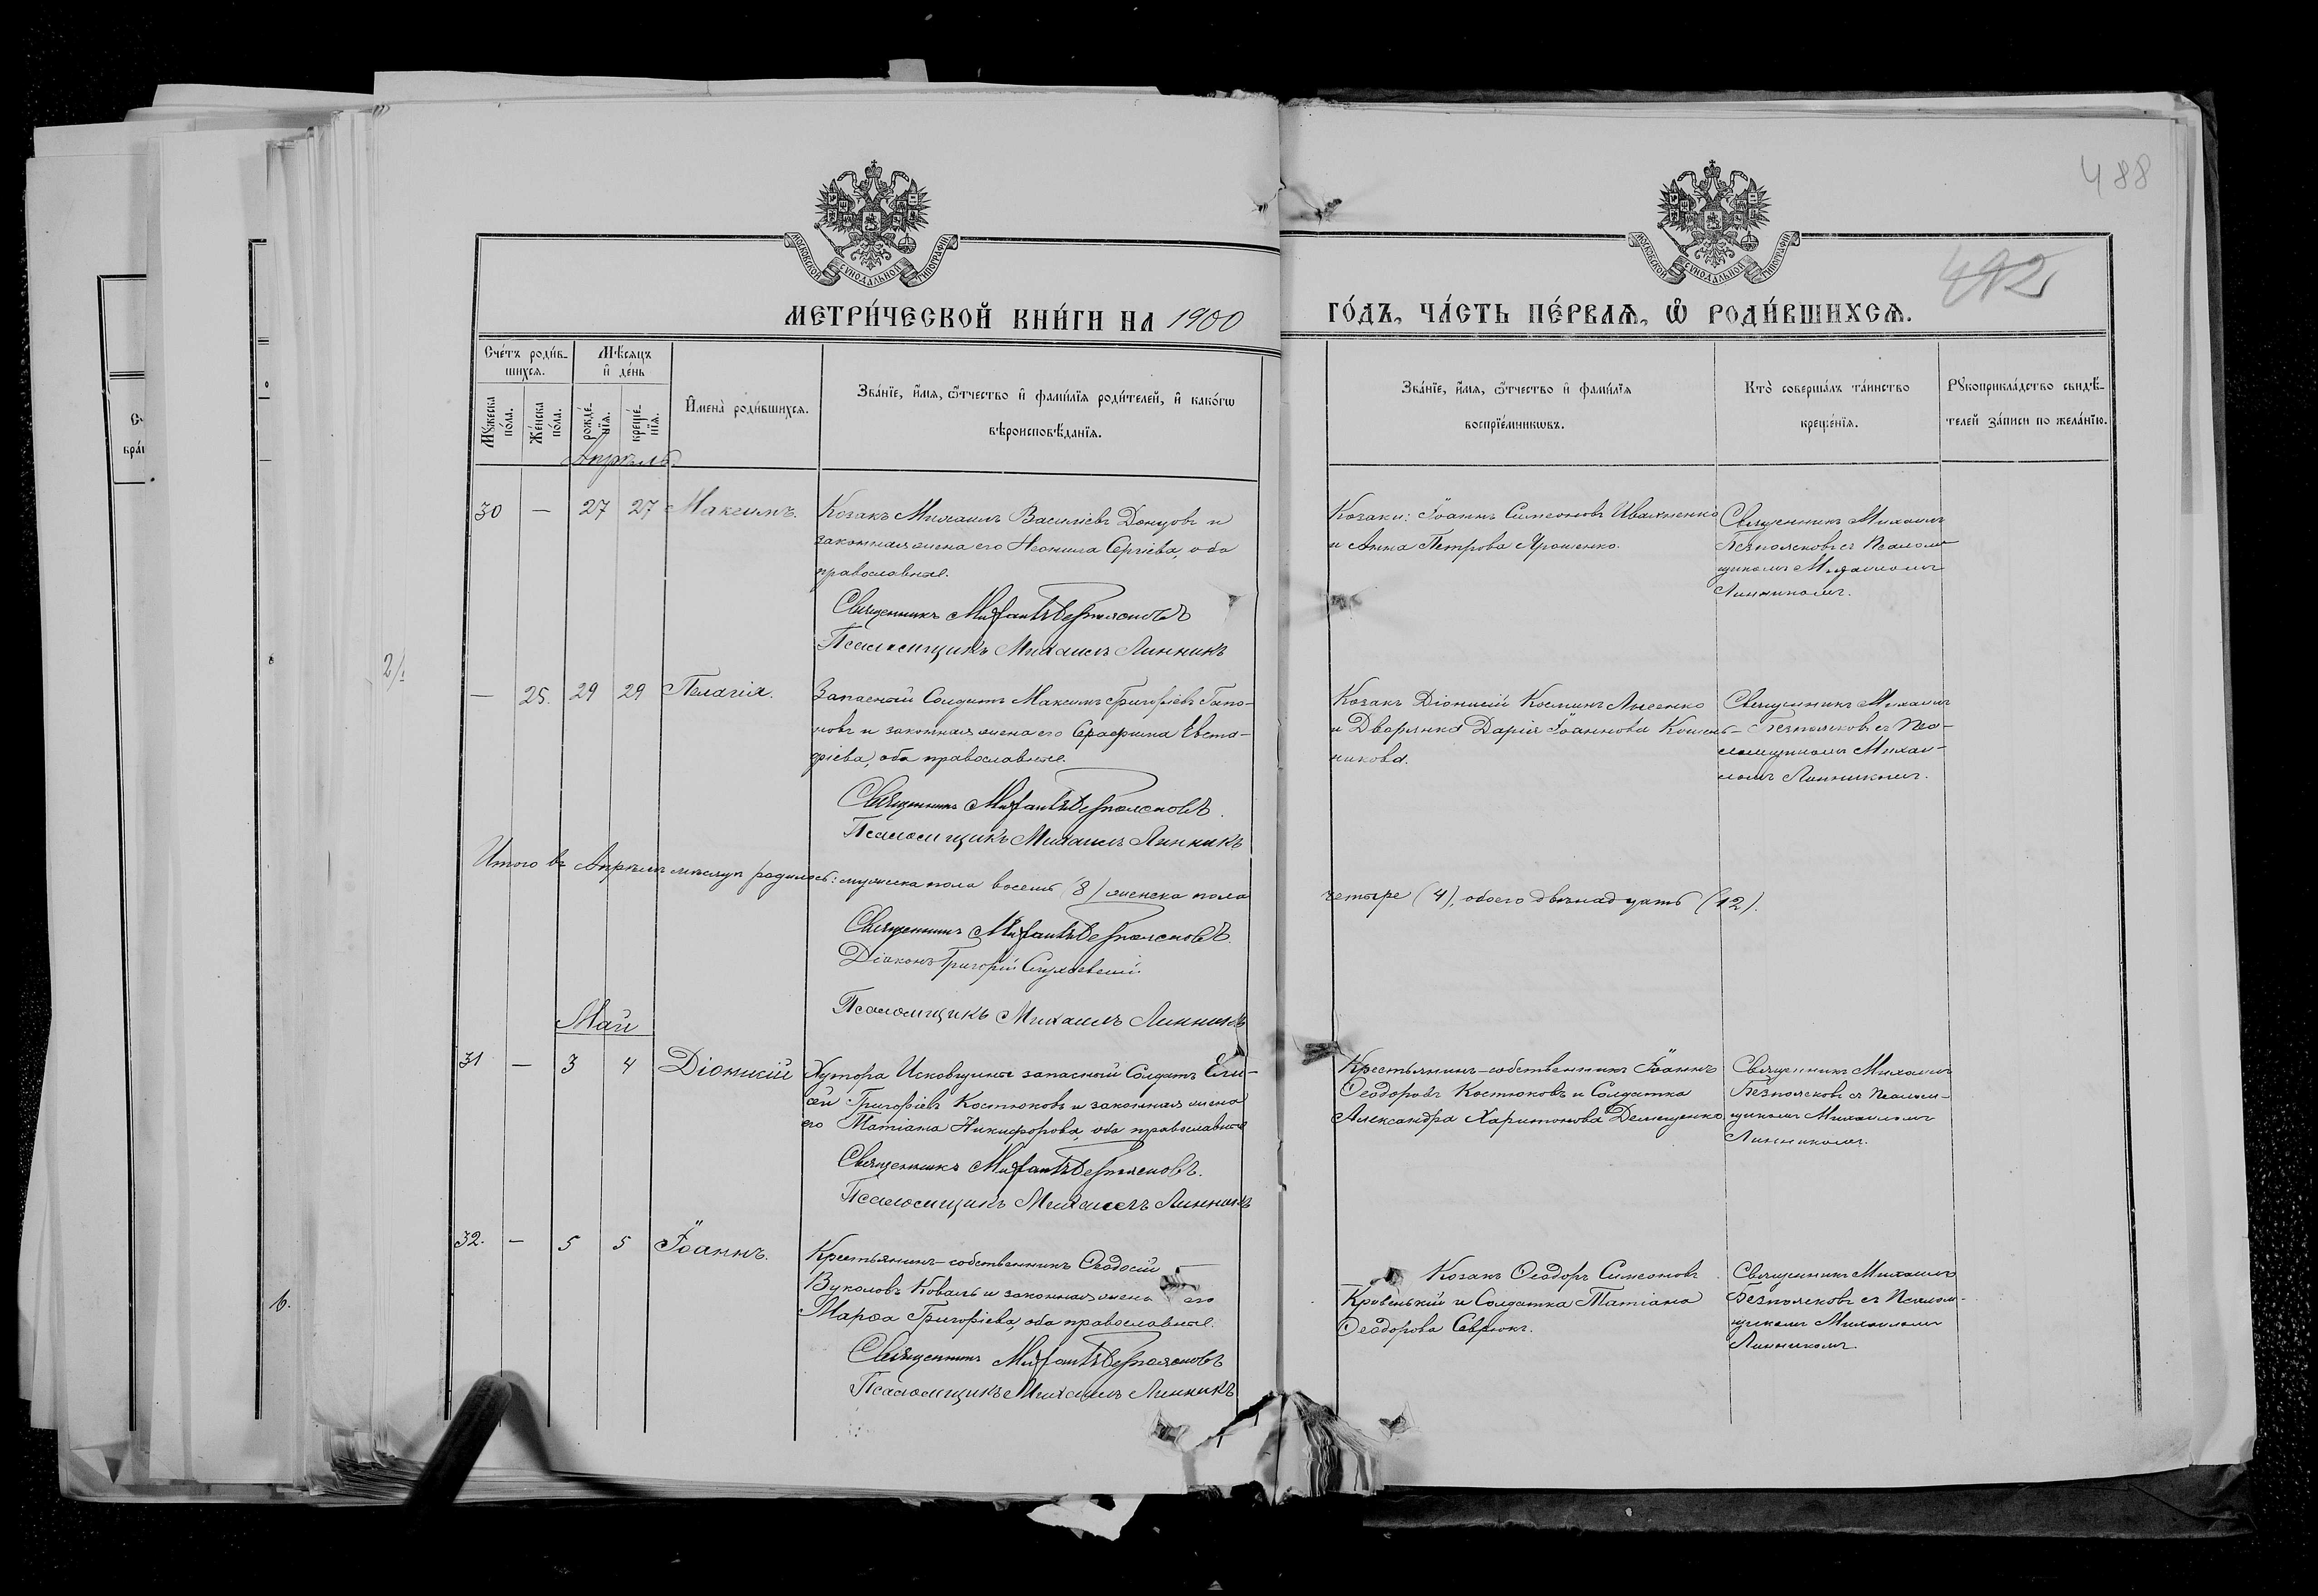 488
492
МОСКОВСКОЙ СѴНОДАЛЬНОЙ ТИПОГРАФІИ
МОСКОВСКОЙ СѴНОДАЛЬНОЙ ТИПОГРАФІИ
МЕТРИ́ЧЕСКОЙ КНИ́ГИ НА 1900
ГО́ДЪ, ЧА́СТЬ ПЕ́РВАѦ, Ѡ РОДИ́ВШИХСѦ.
Сче́тъ роди́в-
шихсѧ.
Мꙋжеска по́ла.
Же́нска по́ла.
Мѣ́сѧцъ
и де́нь
рожде́-
нїѧ.
креще́-
нїѧ.
Имена̀ роди́вшихсѧ.
Зва́нїе, и́мѧ, ѻ҆́тчество и фами́лїѧ роди́телей, и како́гѡ
вѣроисповѣ́данїѧ.
Зва́нїе, и́мѧ, ѻ҆́тчество и фами́лїѧ
воспрїе́мникѡвъ.
Кто̀ соверша́лъ та́инство
креще́нїѧ.
Рꙋкоприкла́дство свидѣ́-
телей за́писи по жела́нїю.
Апрѣль
30 — 27 27 Максимъ.
Козакъ Михаилъ Василіевъ Донцовъ и
законная жена его Неонила Сергіева, оба
православные.
Священникъ Михаилъ Безпоясковъ
Псаломщикъ Михаилъ Линникъ
Козаки: Іоаннъ Симеоновъ Ивахненко
и Анна Петрова Ярошенко.
Священникъ Михаилъ
Безпоясковъ съ Псалом
щикомъ Михаиломъ
Линникомъ.
— 25. 29 29 Пелагія.
Запасный Солдатъ Максимъ Григоріевъ Гапо-
новъ и законная жена его Серафима Евста-
фіева, оба православные.
Священникъ Михаилъ Безпоясковъ.
Псаломщикъ Михаилъ Линникъ
Козакъ Діонисій Косминъ Лысенко
и Дворянка Дарія Іоаннова Кошень-
никова.
Священникъ Михаилъ
Безпоясковъ съ Пса-
ломщикомъ Михаи-
ломъ Линникомъ.
Итого въ Апрѣлѣ мѣсяцѣ родилось: мужеска пола восемь (8) женска пола
четыре (4), обоего двѣнадцать (12).
Священникъ Михаилъ Безпоясковъ.
Діаконъ Григорій
Псаломщикъ Михаилъ Линникъ
Май
31 — 3 4 Діонисій
Хутора Исковщины запасный Солдатъ Ели-
сей Григоріевъ Костюковъ и законная жена
его Татіана Никифорова, оба православные
Священникъ Михаилъ Безпоясковъ.
Псаломщикъ Михаилъ Линникъ
Крестьянинъ-собственникъ Іоаннъ
Ѳеодоровъ Костюковъ и Солдатка
Александра Харитонова Демещенко
Священникъ Михаилъ
Безпоясковъ съ Псалом-
щикомъ Михаиломъ
Линникомъ.
32. — 5 5 Іоаннъ.
Крестьянинъ-собственникъ Ѳеодосій
Вуколовъ Коваль и законная жена его
Марѳа Григоріева, оба православные.
Священникъ Михаилъ Безпоясковъ
Псаломщикъ Михаилъ Линникъ
Козакъ Ѳеодоръ Симеоновъ
Кривенькій и Солдатка Татіана
Ѳеодорова Саврюкъ.
Священникъ Михаилъ
Безпоясковъ съ Псалом-
щикомъ Михаиломъ
Линникомъ.